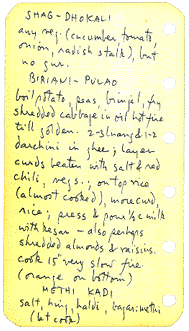 SHAG-DHOKALI
any veg. (cucumber tomato
onion, radish stalk), but
no gur.
BIRIANI-PULAO
boil potato, peas, brinjel, fry
shredded cabbage in oil hot fire
till golden. 2-3 luang & 1-2
darchini in ghee; layer
curds beaten with salt & red
chili, vegs.; on top rice
(almost cooked), more curd,
rice; press & pour ½ c milk
with kesar - also perhaps
shredded almonds & raisins.
cook 15" very slow fire
(orange on bottom)
METHI KADI
salt, hing, haldi, bajari methi
(let cook)